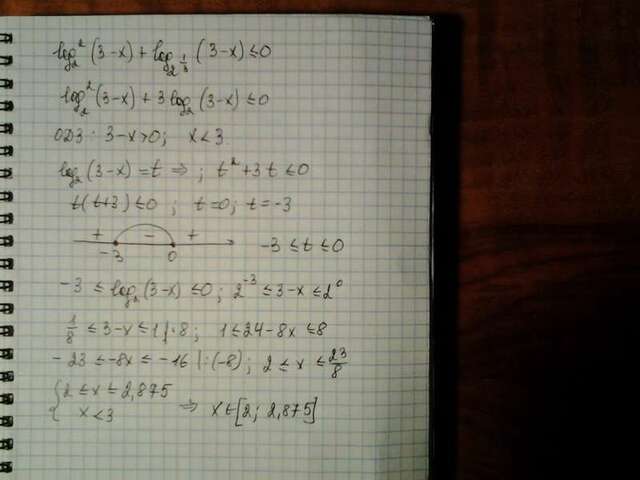 log₂²(3-x)+log_{2^{1/3}}(3-x)≤0
log₂²(3-x)+3log₂(3-x)≤0
ОДЗ: 3-x>0; x<3
log₂(3-x)=t ⇒; t²+3t≤0
t(t+3)≤0; t=0; t=-3
+ - + -3≤t≤0
-3 0
-3≤log₂(3-x)≤0; 2⁻³≤3-x≤2⁰
1/8≤3-x≤1|·8; 1≤24-8x≤8
-23≤-8x≤-16|:(-8); 2≤x≤23/8
{2≤x≤2,875
x<3 ⇒ x∈[2; 2,875]